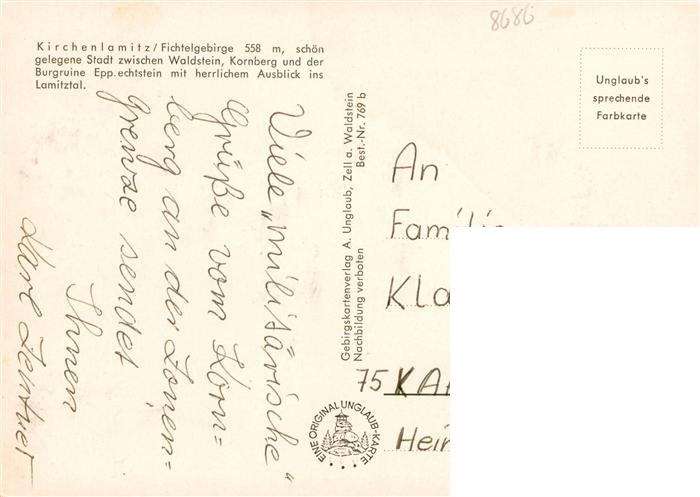 8686
Kirchenlamitz/Fichtelgebirge 558 m, schön
gelegene Stadt zwischen Waldstein, Kornberg und der
Burgruine Epp.echtstein mit herrlichem Ausblick ins
Lamitztal.
Viele „militärische"
Grüße vom Korn=
berg an der Zonen=
grenze sendet
Ihnen
Karl
Gebirgskartenverlag A. Unglaub, Zell a. Waldstein
Nachbildung verboten Best.-Nr. 769 b
Unglaub's
sprechende
Farbkarte
An
Familie
Kla
75 KA
Hein
EINE ORIGINAL UNGLAUB-KARTE